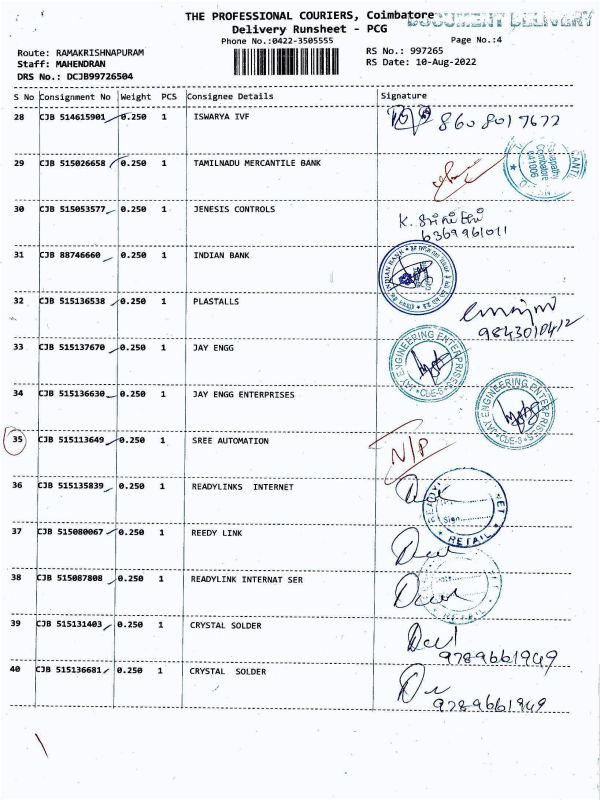 THE PROFESSIONAL COURIERS, Coimbatore
DOCUMENT DELIVERY
Delivery Runsheet - PCG
Phone No.:0422-3505555
Page No.:4
Route: RAMAKRISHNAPURAM
RS No.: 997265
Staff: MAHENDRAN
RS Date: 10-Aug-2022
DRS No.: DCJB99726504
S No Consignment No Weight PCS Consignee Details Signature
28 CJB 514615901 0.250 1 ISWARYA IVF 8608017677
29 CJB 515026658 0.250 1 TAMILNADU MERCANTILE BANK
Coimbatore
641006
30 CJB 515053577 0.250 1 JENESIS CONTROLS
6369961011
31 CJB 88746660 0.250 1 INDIAN BANK
INDIAN BANK
32 CJB 515136538 0.250 1 PLASTALLS
9843010412
33 CJB 515137670 0.250 1 JAY ENGG
JAY ENGINEERING ENTERPRISES CBE-6
34 CJB 515136630 0.250 1 JAY ENGG ENTERPRISES
JAY ENGINEERING ENTERPRISES CBE-6
35 CJB 515113649 0.250 1 SREE AUTOMATION N/P
36 CJB 515135839 0.250 1 READYLINKS INTERNET
Sign
RETAIL
37 CJB 515080067 0.250 1 REEDY LINK
38 CJB 515087808 0.250 1 READYLINK INTERNAT SER
39 CJB 515131403 0.250 1 CRYSTAL SOLDER
9789661949
40 CJB 515136681 0.250 1 CRYSTAL SOLDER
9789661949